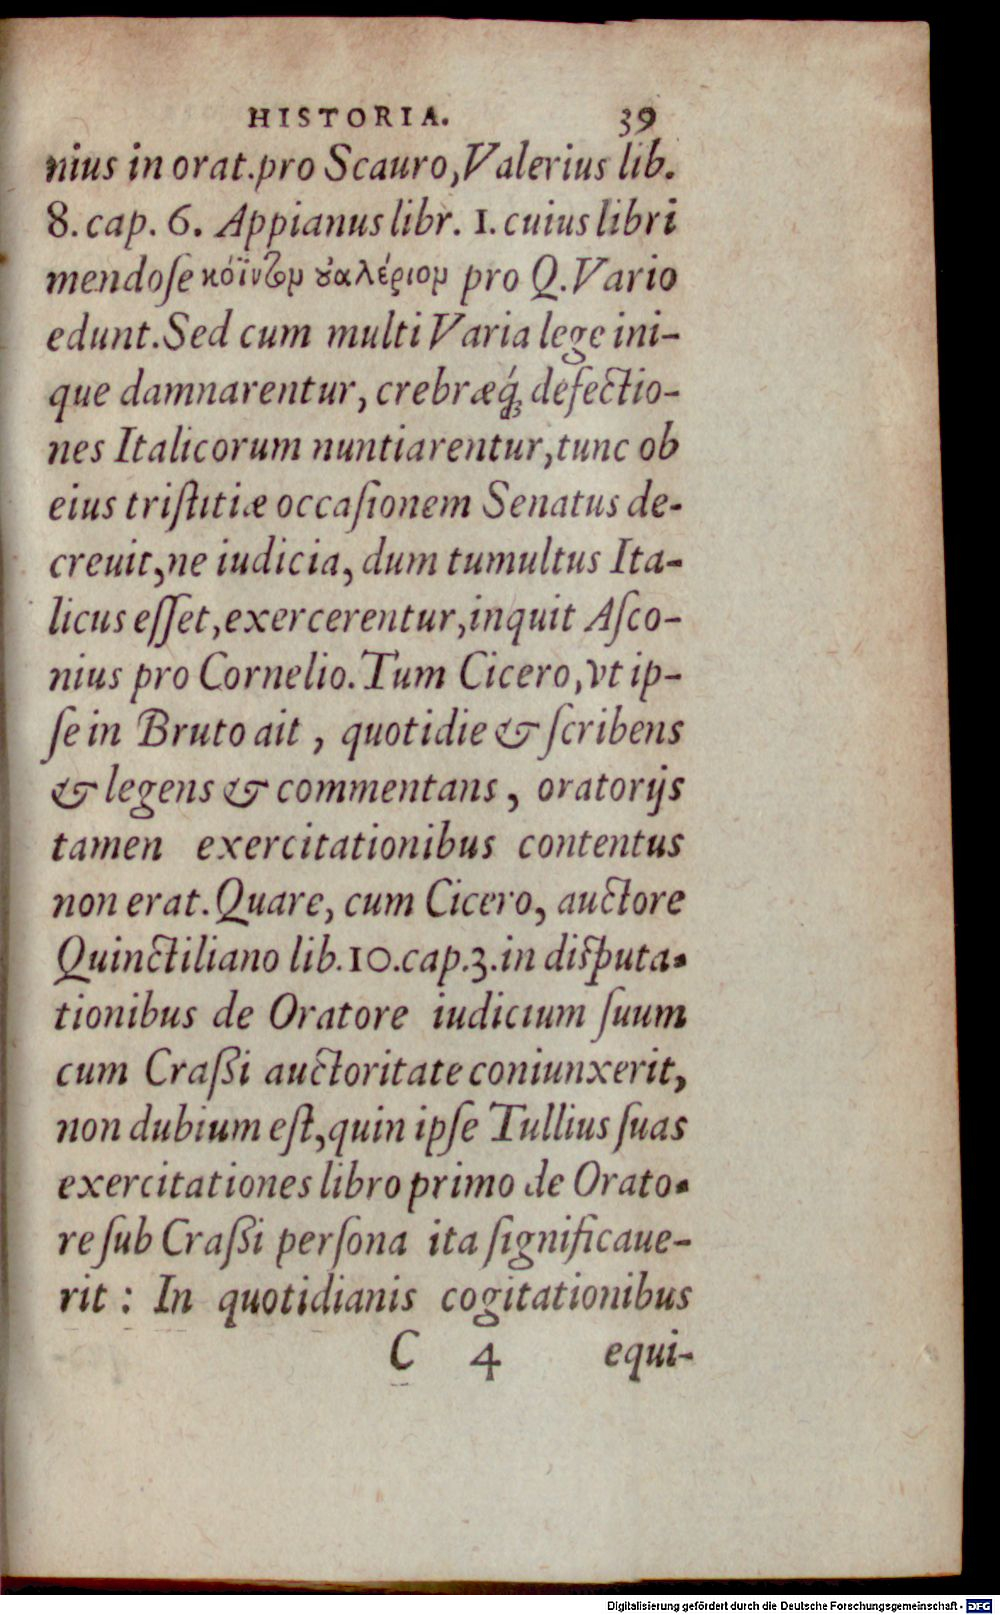 HISTORIA. 39
nius in orat.pro Scauro,Valerius lib.
8. cap. 6. Appianus libr. 1. cuius libri
mendoſe κόϊντομ ȣαλέριομ pro Q.Vario
edunt.Sed cum multi Varia lege ini-
que damnarentur, crebræq́; defectio-
nes Italicorum nuntiarentur,tunc ob
eius triſtitiæ occaſionem Senatus de-
creuit,ne iudicia, dum tumultus Ita-
licus eſſet,exercerentur,inquit Aſco-
nius pro Cornelio.Tum Cicero,vt ip-
ſe in Bruto ait , quotidie & ſcribens
& legens & commentans , oratorijs
tamen exercitationibus contentus
non erat.Quare, cum Cicero, auctore
Quinctiliano lib.10.cap.3.in diſputa-
tionibus de Oratore iudicium ſuum
cum Craßi auctoritate coniunxerit,
non dubium eſt,quin ipſe Tullius ſuas
exercitationes libro primo de Orato-
re ſub Craßi perſona ita ſignificaue-
rit : In quotidianis cogitationibus
C 4 equi-
Digitalisierung gefördert durch die Deutsche Forschungsgemeinschaft - DFG